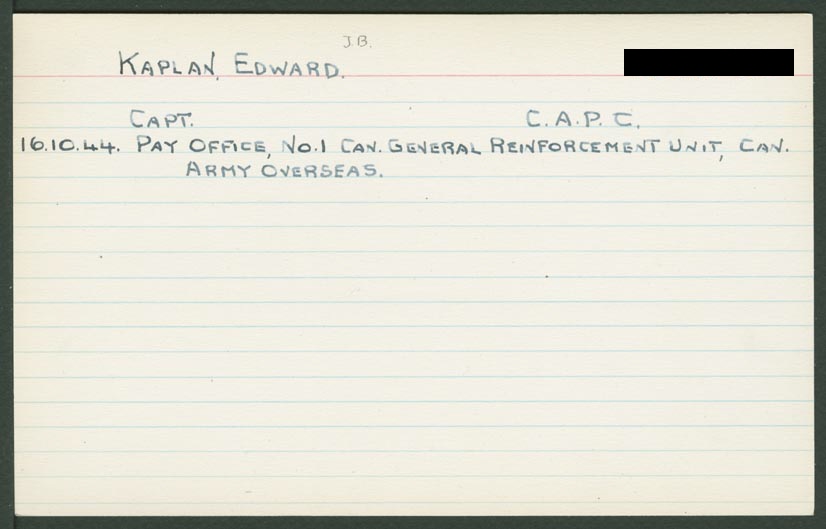 J.B.
KAPLAN, EDWARD.
CAPT. C.A.P.C.
16.10.44. PAY OFFICE, NO.1 CAN. GENERAL REINFORCEMENT UNIT, CAN.
ARMY OVERSEAS.